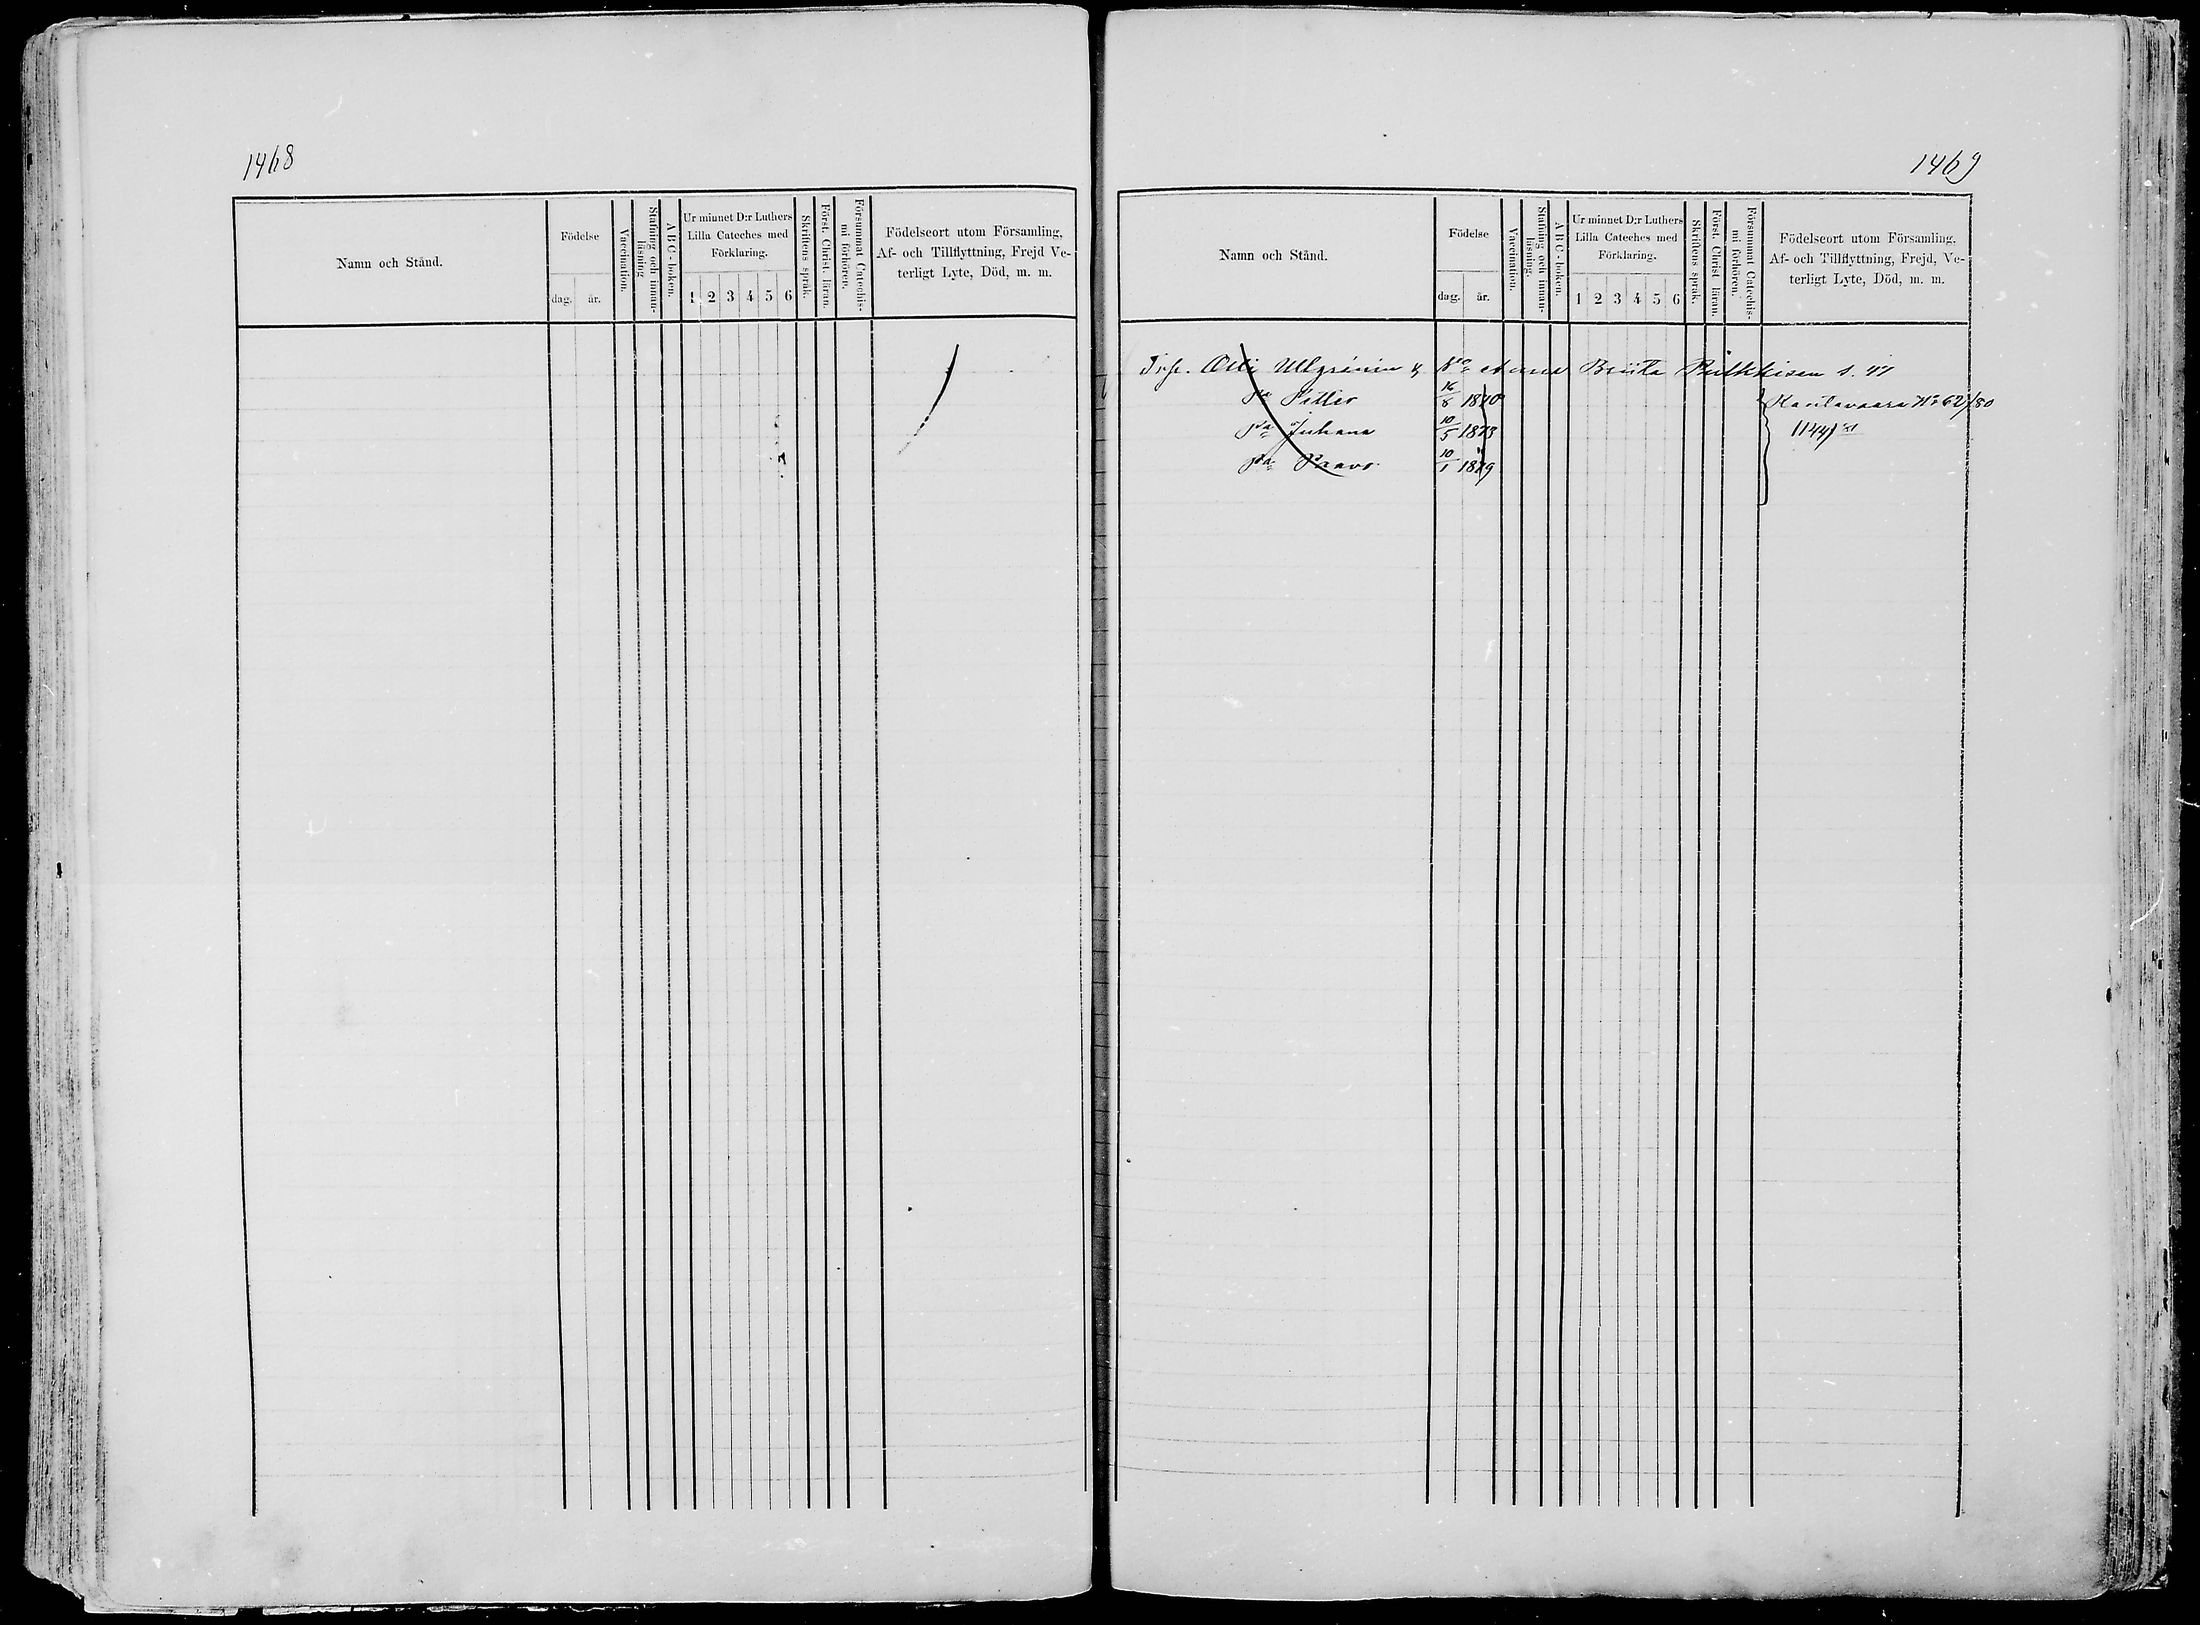 1468
Namn och Stånd.
Födelse
dag. år.
Vaccination.
Stafning och innan-
läsning
A B C - boken.
Ur minnet D:r Luthers
Lilla Cateches med
Förklaring.
1 2 3 4 5 6
Skriftens språk.
Först. Christ. läran.
Försummat Catechis-
mi förhören.
Födelseort utom Församling,
Af- och Tillflyttning, Frejd Ve-
terligt Lyte, Död, m. m.
1469
Namn och Stånd.
Födelse
dag. år.
Vaccination.
Stafning och innan-
läsning.
A B C - boken.
Ur minnet D:r Luthers
Lilla Cateches med
Förklaring.
1 2 3 4 5 6
Skriftens språk.
Först. Christ läran.
Försummat Catechis-
mi förhören.
Födelseort utom Församling,
Af- och Tillflyttning, Frejd, Ve-
terligt Lyte, Död, m. m.
Olli Anna s. 47
Petter 16/8 1870 No 62/80
Juhana 10/5 1873 1144
Paavo 10/1 1879